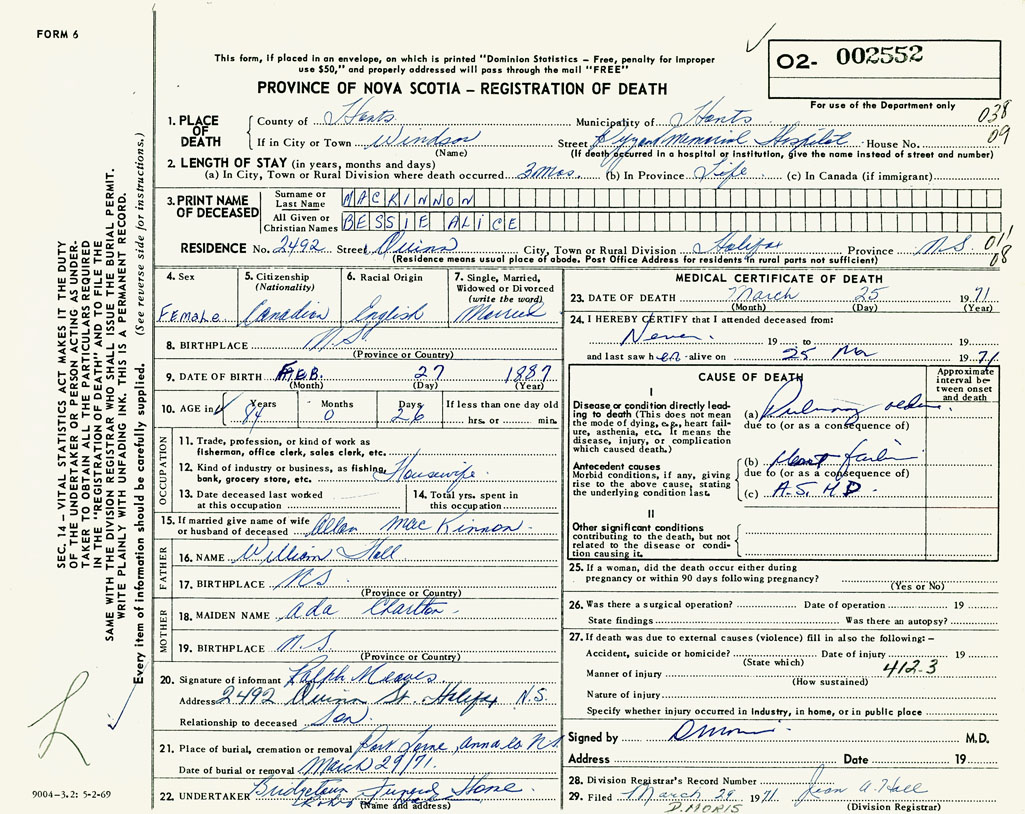 FORM 6
This form, if placed in an envelope, on which is printed "Dominion Statistics – Free, penalty for improper
use $50," and properly addressed will pass through the mail "FREE"
PROVINCE OF NOVA SCOTIA – REGISTRATION OF DEATH
O2- 002552
For use of the Department only
038
09
1. PLACE OF DEATH
County of Hants Municipality of Hants
If in City or Town Windsor Street Memorial Hospital House No.
(Name) (If death occurred in a hospital or institution, give the name instead of street and number)
2. LENGTH OF STAY (in years, months and days)
(a) In City, Town or Rural Division where death occurred 3 Mos. (b) In Province Life (c) In Canada (if immigrant)
3. PRINT NAME OF DECEASED
Surname or Last Name MACKINNON
All Given or Christian Names BESSIE ALICE
RESIDENCE No. 2492 Street Quinn City, Town or Rural Division Halifax Province N.S. 011
08
(Residence means usual place of abode. Post Office Address for residents in rural parts not sufficient)
4. Sex Female
5. Citizenship (Nationality) Canadian
6. Racial Origin English
7. Single, Married, Widowed or Divorced (write the word) Married
8. BIRTHPLACE N.S.
(Province or Country)
9. DATE OF BIRTH FEB. 27 1887
(Month) (Day) (Year)
10. AGE in Years 84 Months 0 Days 26 If less than one day old
hrs. or min.
OCCUPATION
11. Trade, profession, or kind of work as
fisherman, office clerk, sales clerk, etc.
12. Kind of industry or business, as fishing,
bank, grocery store, etc. Housewife
13. Date deceased last worked
at this occupation
14. Total yrs. spent in
this occupation
15. If married give name of wife
or husband of deceased Allan MacKinnon
FATHER
16. NAME William Hall
17. BIRTHPLACE N.S.
(Province or Country)
MOTHER
18. MAIDEN NAME Ada Charlton
19. BIRTHPLACE N.S.
(Province or Country)
20. Signature of informant Ralph
Address 2492 Quinn St. Halifax N.S.
Relationship to deceased Son
21. Place of burial, cremation or removal Port Lorne, Anna Co. N.S.
Date of burial or removal March 29/71.
22. UNDERTAKER Bridgetown Funeral Home
(Name and address)
MEDICAL CERTIFICATE OF DEATH
23. DATE OF DEATH March 25 1971
(Month) (Day) (Year)
24. I HEREBY CERTIFY that I attended deceased from:
Never 19 to 19
and last saw her alive on 25 Mar 1971
CAUSE OF DEATH
Approximate interval between onset and death
I
Disease or condition directly leading to death (This does not
mean the mode of dying, e.g., heart failure, asthenia, etc. It means the
disease, injury, or complication
which caused death.)
(a) Pulmonary
due to (or as a consequence of)
Antecedent causes
Morbid conditions, if any, giving
rise to the above cause, stating
the underlying condition last.
(b) Heart failure
due to (or as a consequence of)
(c) A.S.H.D.
II
Other significant conditions
contributing to the death, but not
related to the disease or condition causing it.
25. If a woman, did the death occur either during
pregnancy or within 90 days following pregnancy?
(Yes or No)
26. Was there a surgical operation? Date of operation 19
State findings Was there an autopsy?
27. If death was due to external causes (violence) fill in also the following: –
Accident, suicide or homicide? Date of injury 19
(State which)
Manner of injury 412-3
(How sustained)
Nature of injury
Specify whether injury occurred in industry, in home, or in public place
Signed by M.D.
Address Date 19
28. Division Registrar's Record Number
29. Filed March 29 1971 Jean A. Hall
D. MORIS (Division Registrar)
SEC. 14 – VITAL STATISTICS ACT MAKES IT THE DUTY
OF THE UNDERTAKER OR PERSON ACTING AS UNDER-
TAKER TO OBTAIN ALL THE PARTICULARS REQUIRED
IN THE "REGISTRATION OF DEATH" AND TO FILE THE
SAME WITH THE DIVISION REGISTRAR WHO SHALL ISSUE THE BURIAL PERMIT.
WRITE PLAINLY WITH UNFADING INK. THIS IS A PERMANENT RECORD.
Every item of information should be carefully supplied. (See reverse side for instructions.)
9004-3.2: 5-2-69